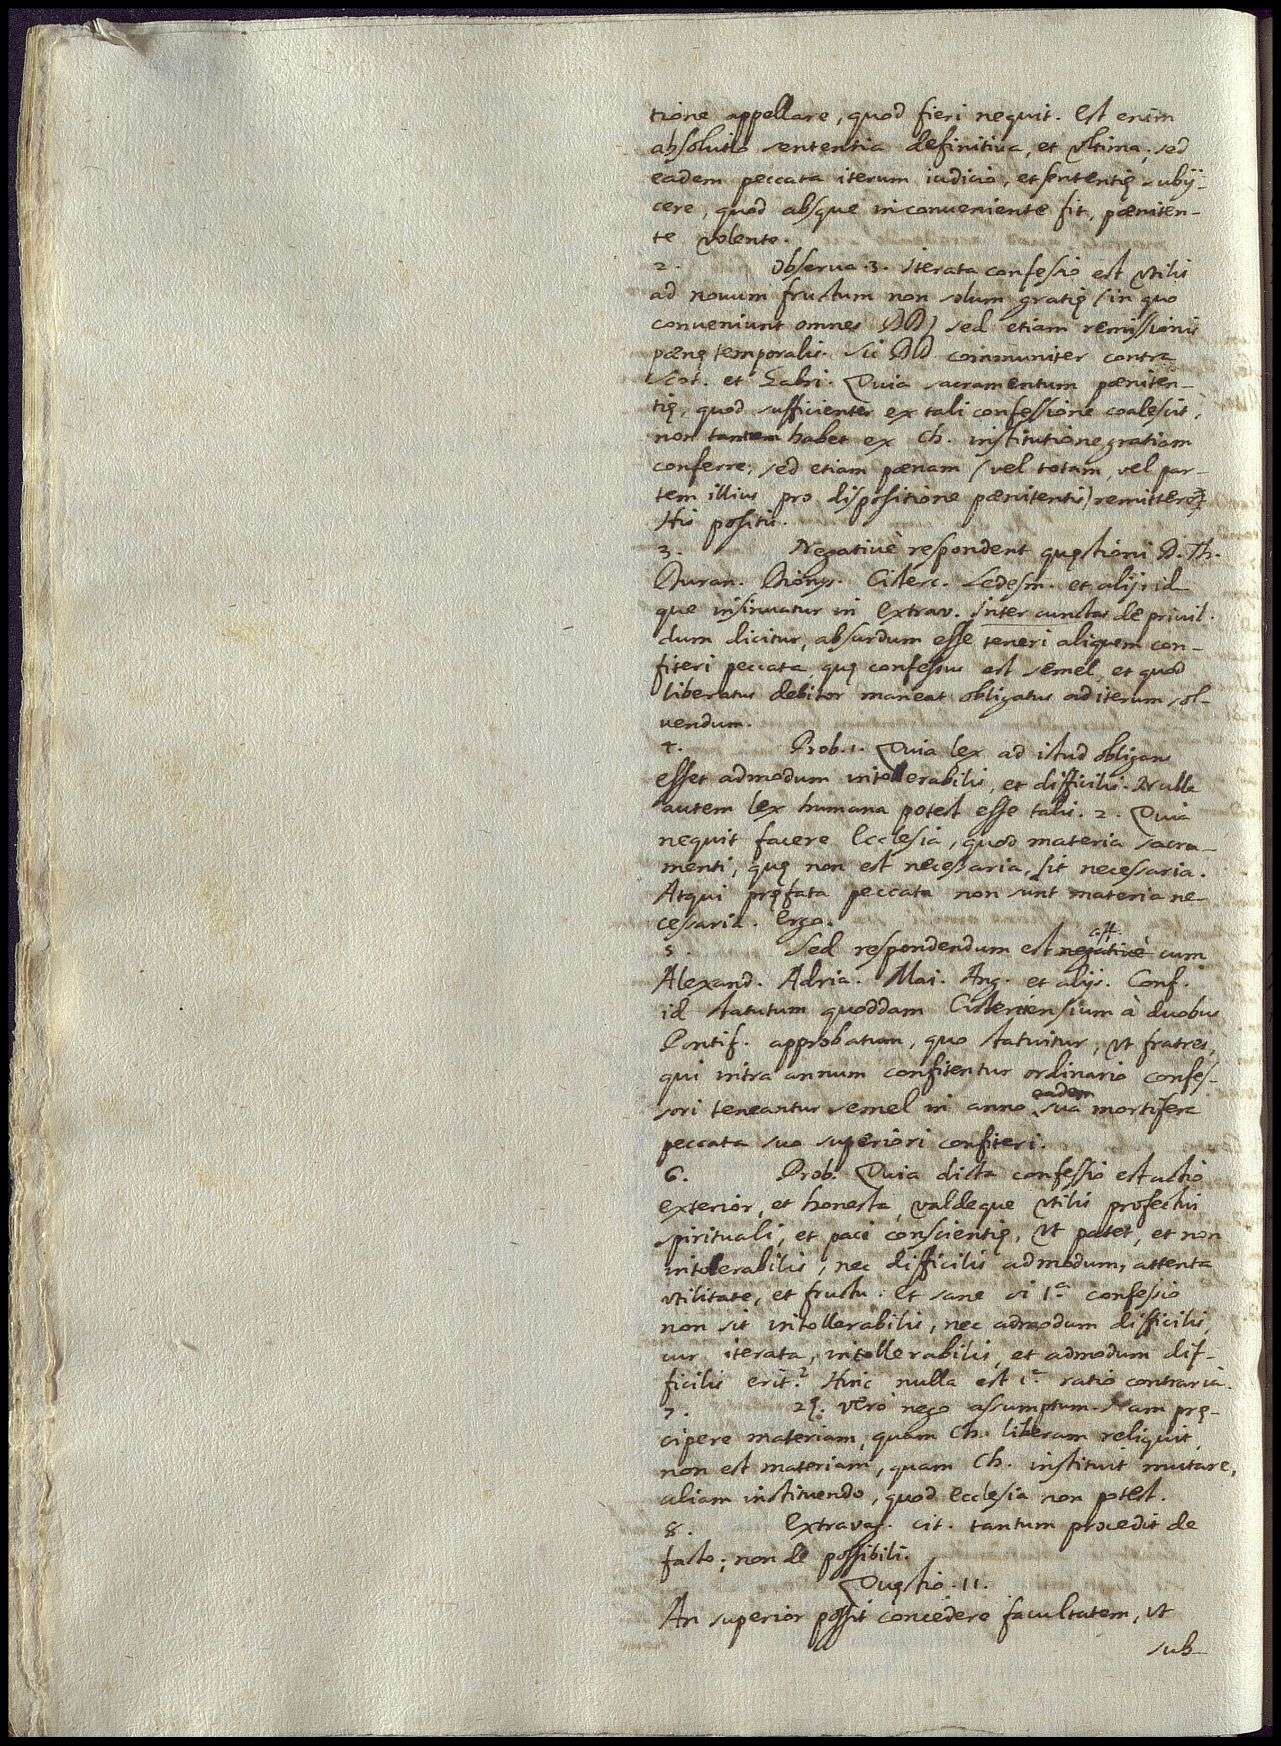 tione appellare, quod fieri nequit. Est enim
absolutio sententia definitiua, et vltima, sed
eadem peccata iterum iudicio, et sententię subij-
cere, quod absque inconueniente fit, pæniten-
te volente.
2. Obserua 3. iterata confessio est vtilis
ad nouum fructum non solum gratię (in quo
conueniunt omnes DD) sed etiam remissionis
pænę temporalis. Sic DD communiter contra
Scot. et Gabri. Quia sacramentum pæniten-
tię, quod sufficienter ex tali confessione coalescit,
non tantum habet ex Ch. institutione gratiam
conferre, sed etiam pænam (vel totam, vel par-
tem illius pro dispositione pænitentis) remittere.
His positis.
3. Negatiuè respondent quęstioni D. Th.
Duran. Dionys. Cisterc. Ledesm. et alij, id
que insinuatur in Extrav. inter cunctas de priuil.
dum dicitur, absurdum esse teneri aliquem con-
fiteri peccata, quę confessus est semel, et quod
liberatus debitor maneat obligatus ad iterum sol-
uendum.
4. Prob. 1. Quia lex ad istud obligans
esset admodum intollerabilis, et difficilis. Nulla
autem lex humana potest esse talis. 2. Quia
nequit facere Ecclesia, quod materia sacra-
menti, quę non est necessaria, sit necessaria.
Atqui pręfata peccata non sunt materia ne-
cessaria. Ergo.
5. Sed respondendum est negatiuè aff. cum
Alexand. Adria. Mai. Ang. et alijs. Conf.
id statutum quoddam Cisterciensium à duobus
Pontif. approbatum, quo statuitur, vt fratres,
qui intra annum confitentur ordinario confes-
sori teneantur semel in anno eadem sua mortifera
peccata suo superiori confiteri.
6. Prob. Quia dicta confessio est actio
exterior, et honesta, valdeque vtilis profectui
spirituali, et paci conscientię, vt patet, et non
intolerabilis, nec difficilis admodum, attenta
vtilitate, et fructu. Et sane si 1ª confessio
non sit intollerabilis, nec admodum difficilis,
cur iterata, intollerabilis, et admodum dif-
ficilis erit? Hinc nulla est 1ª ratio contraria.
7. 2ę. vero nego assumptum. Nam prę-
cipere materiam, quam Ch. liberam reliquit,
non est materiam, quam Ch. instituit mutare,
aliam instituendo, quod Ecclesia non potest.
8. Extravag. cit. tantum procedit de
facto; non de possibili.
Quęstio .11.
An superior possit concedere facultatem, vt
sub-